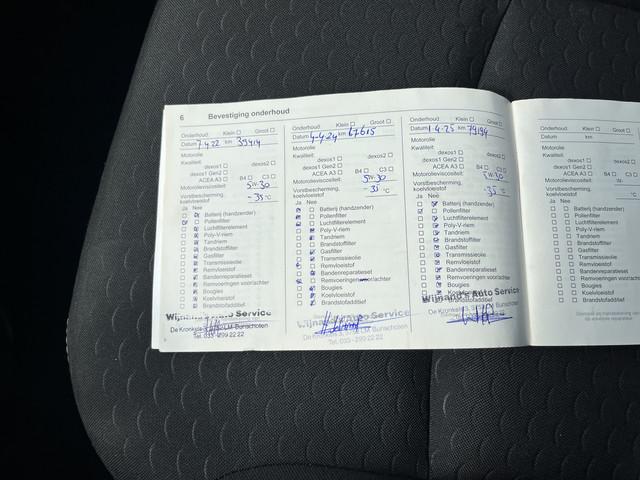 6 Bevestiging onderhoud
Onderhoud: Klein Groot
Datum 7-4-22 km 39414
Motorolie
Kwaliteit:
dexos1 dexos2
dexos1 Gen2
ACEA A3 B4 C3
Motorolieviscositeit: 5W-30
Vorstbescherming,
koelvloeistof -35 °C
Ja Nee
Batterij (handzender)
Pollenfilter
Luchtfilterelement
Poly-V-riem
Tandriem
Brandstoffilter
Gasfilter
Transmissieolie
Remvloeistof
Bandenreparatieset
Remvoeringen voor/achter
Bougies
Koelvloeistof
Brandstofadditief
Wijnand's Auto Service
De Kronkels
Bunschoten
Tel. 033 - 299 22 22
Onderhoud: Klein Groot
Datum 4-4-24 km 67615
Motorolie
Kwaliteit:
dexos1 dexos2
dexos1 Gen2
ACEA A3 B4 C3
Motorolieviscositeit: 5W-30
Vorstbescherming,
koelvloeistof -35 °C
Ja Nee
Batterij (handzender)
Pollenfilter
Luchtfilterelement
Poly-V-riem
Tandriem
Brandstoffilter
Gasfilter
Transmissieolie
Remvloeistof
Bandenreparatieset
Remvoeringen voor/achter
Bougies
Koelvloeistof
Brandstofadditief
Auto Service
De Kronkels
Bunschoten
Tel. 033 - 299 22 22
Onderhoud: Klein Groot
Datum 1-4-25 km 79194
Motorolie
Kwaliteit:
dexos1 dexos2
dexos1 Gen2
ACEA A3 B4 C3
Motorolieviscositeit: 5W-30
Vorstbescherming,
koelvloeistof -35 °C
Ja Nee
Batterij (handzender)
Pollenfilter
Luchtfilterelement
Poly-V-riem
Tandriem
Brandstoffilter
Gasfilter
Transmissieolie
Remvloeistof
Bandenreparatieset
Remvoeringen voor/achter
Bougies
Wijnand's Auto Service
De Kronkels
Bunschoten
Onderhoud: Klein
Datum km
Motorolie
Kwaliteit:
dexos1
dexos1 Gen2
ACEA A3
Motorolieviscositeit:
Vorstbescherming,
koelvloeistof
Ja Nee
Batterij (handzender)
Pollenfilter
Luchtfilterelement
Poly-V-riem
Tandriem
Brandstoffilter
Gasfilter
Transmissieolie
Remvloeistof
Bandenreparatieset
Remvoeringen voor/achter
Bougies
Koelvloeistof
Brandstofadditief